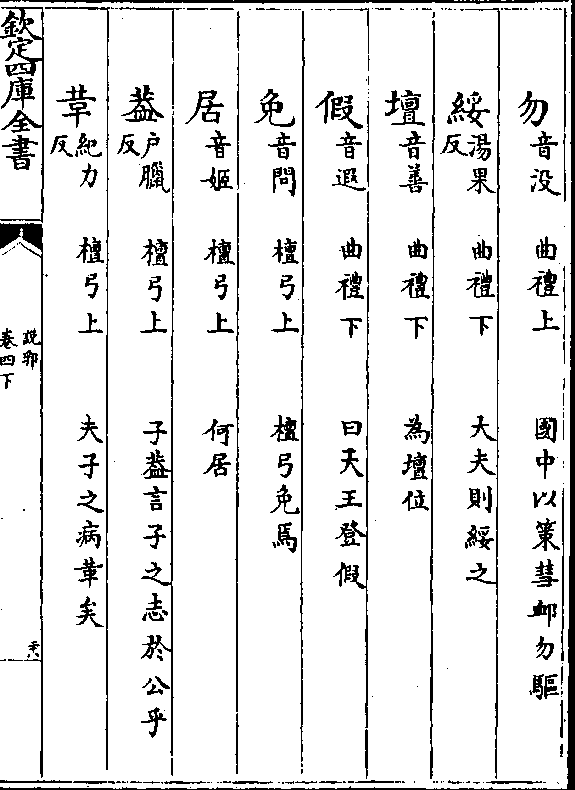 勿音没 曲禮上 國中以策彗䘏勿驅
綏湯果反 曲禮下 大夫則綏之
壇音善 曲禮下 為壇位
假音遐 曲禮下 曰天王登假
免音問 檀弓上 檀弓免焉
居音姬 檀弓上 何居
葢户臘反 檀弓上 子葢言子之志於公乎
革紀力反 檀弓上 夫子之病革矣
欽定四庫全書
説郛
卷四下